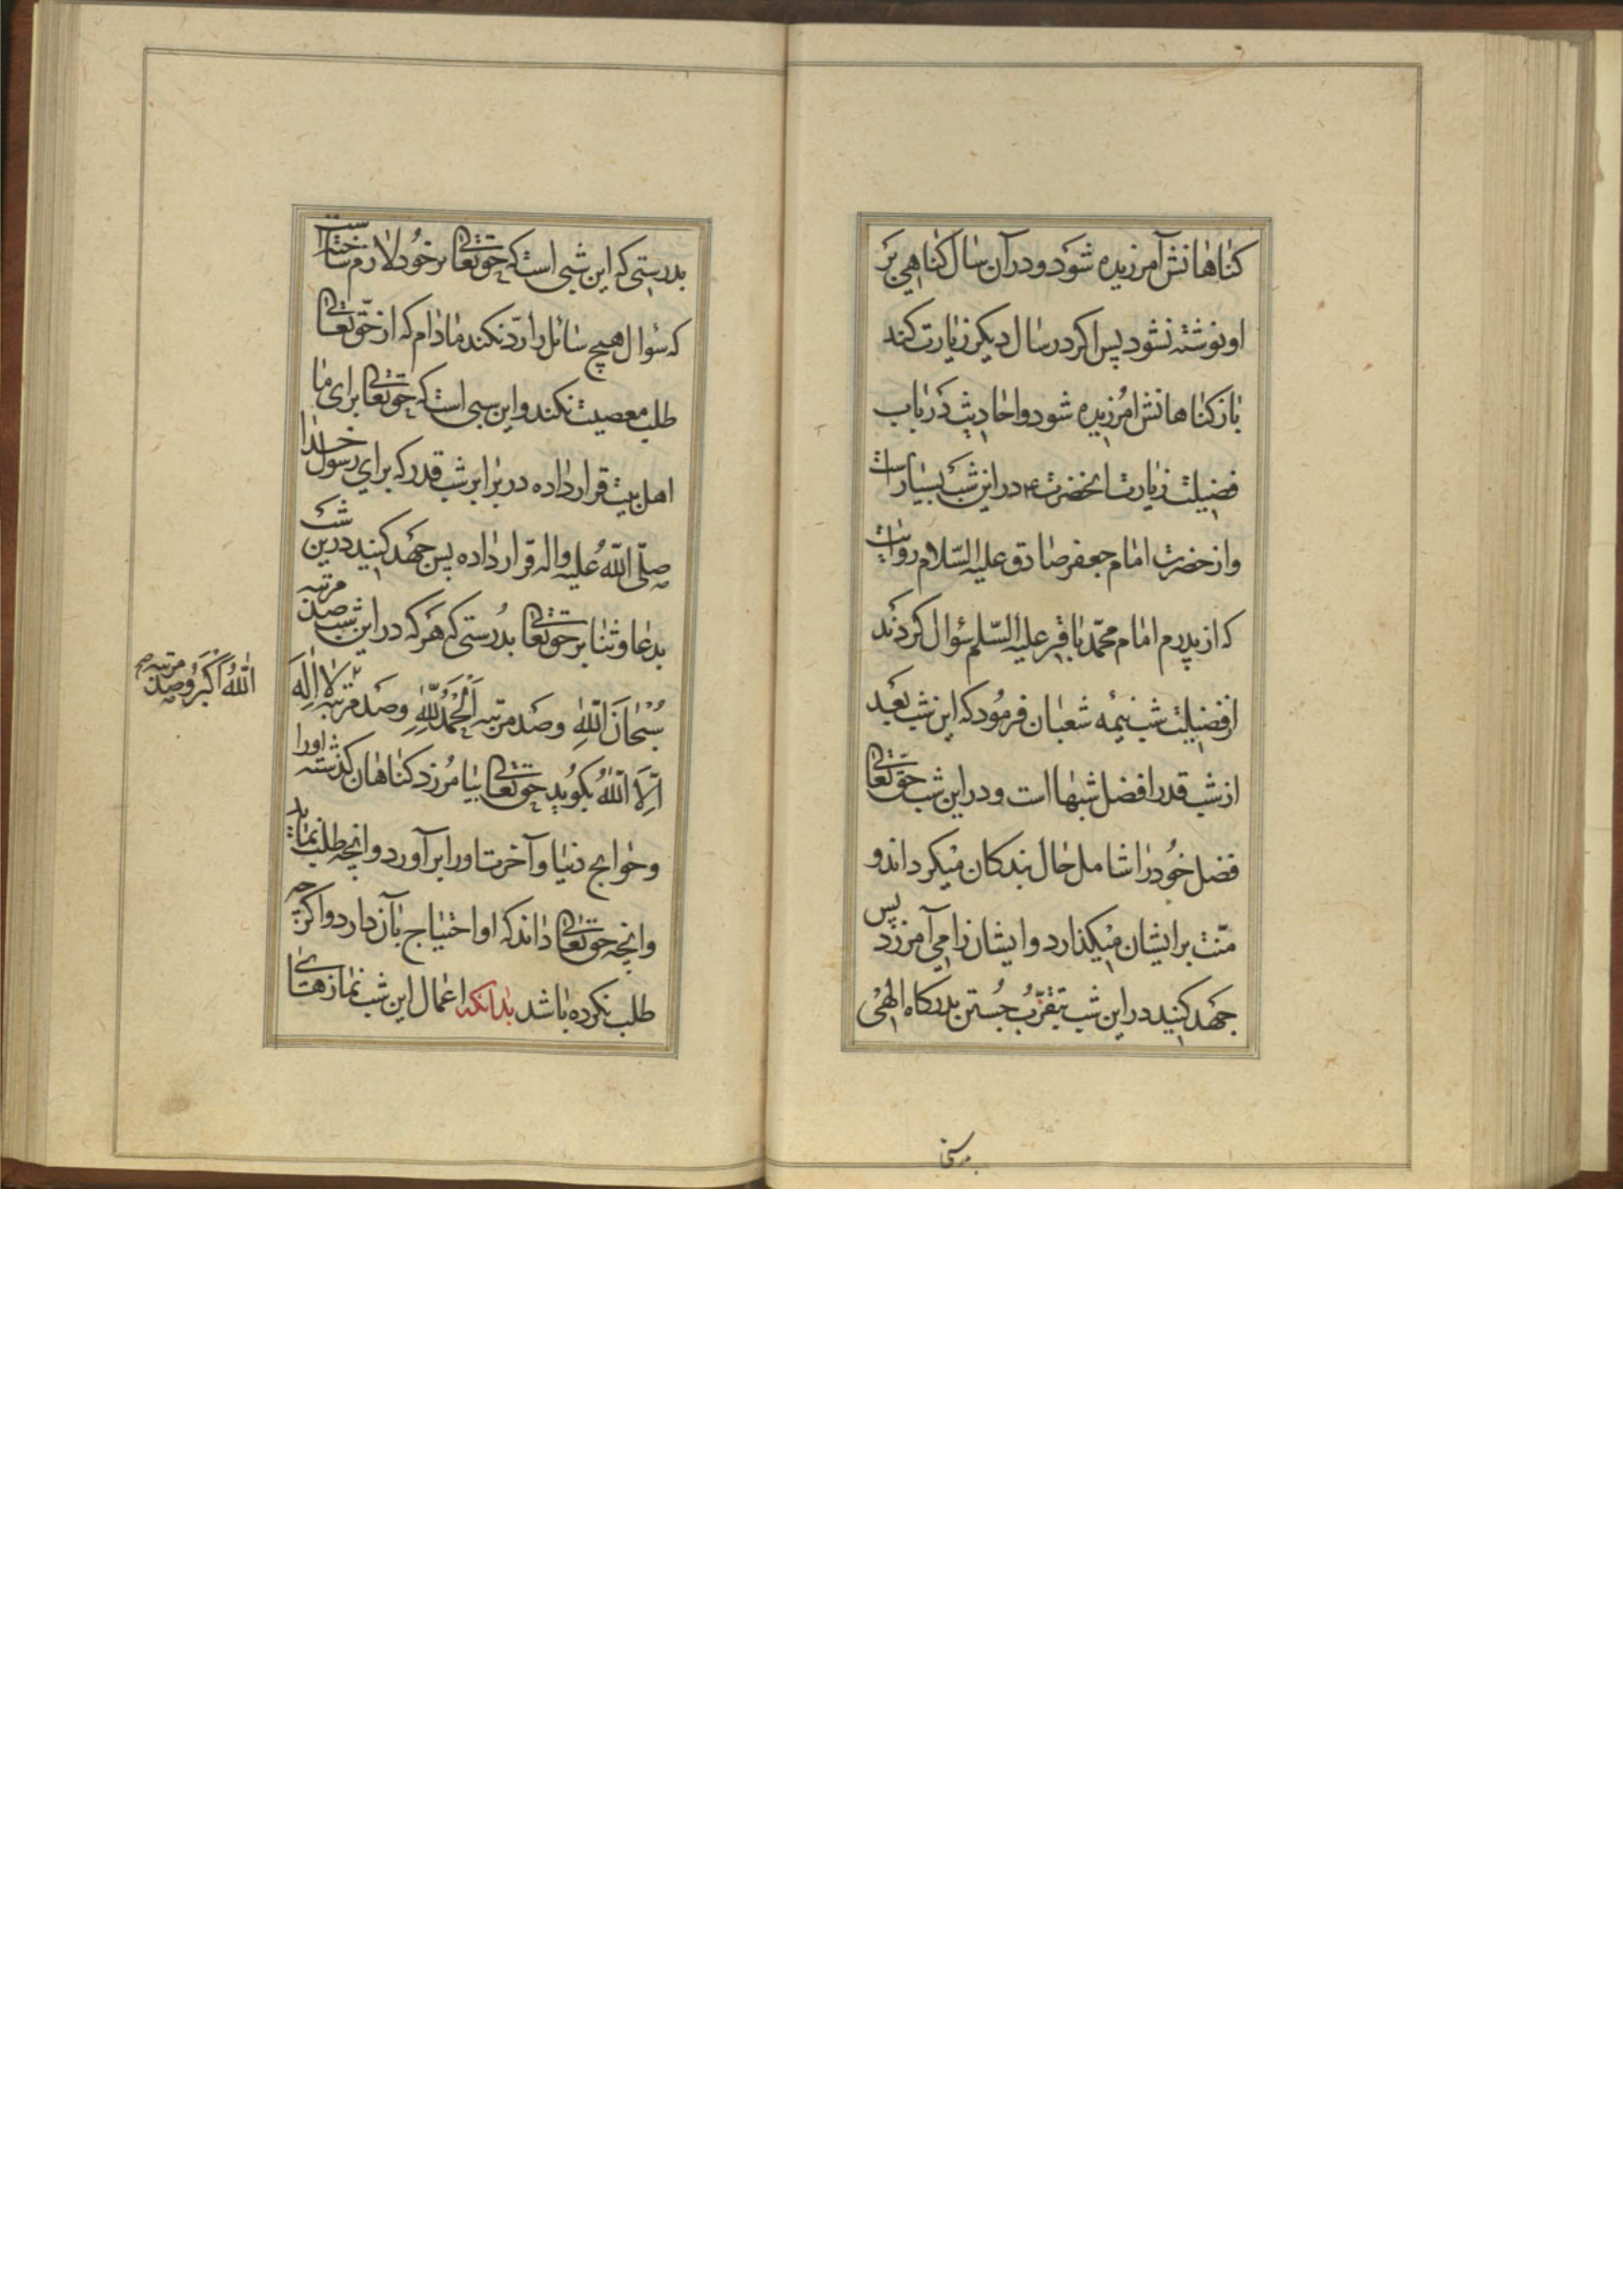 کناهانش آمرزیده شود و در آن سال کناهی بر
او نوشته نشود پس اکر در سال دیکر زیارت کند
باز کناهانش امرزیده شود و احادیث در باب
فضیلت زیارت انحضرت ع در این شب بسیار است
و از حضرت امام جعفر صادق علیه السّلام روایت
که از پدرم امام محمّد باقر علیه السّلم سؤال کردند
از فضیلت شب نیمه شعبان فرمود که این شب بعد
از شب قدر افضل شبها است و در این شب حقّ تعالی
فضل خود را شامل حال بندکان میکرداند و
منّت بر ایشان میکذارد و ایشان را می آمرزد پس
جهد کنید در این شب بتقرّب جستن بدرکاه الهی
بدرستی که
بدرستی که این شبی است که حق تعالی بر خود لازم ساخته است
که سؤال هیچ سائل را ردّ نکند مادام که از حقّ تعالی
طلب معصیت نکند و این شبی است که حق تعالی برای ما
اهل بیت قرار داده در برابر شب قدر که برای رسول خدا
صلّی اللّه علیه و اله قرار داده پس جهد کنید درین شب
بدعا و ثنا بر حق تعالی بدرستی که هر که در این شب صد مرتبه
سُبْحانَ اللّهِ و صد مرتبه اَلْحَمْدُ لِلّهِ و صد مرتبه لا اِلهَ
اِلَّا اللّهُ بکوید حق تعالی بیامرزد کناهان کذشته او را
و حوایج دنیا و آخرت او را برآورد و انچه طلب نماید
و انچه حق تعالی داند که او احتیاج بآن دارد و اکر چه
طلب نکرده باشد بدانکه اعمال این شب نمازهای
اَللّهُ اَکْبَرُ و صد مرتبه صح